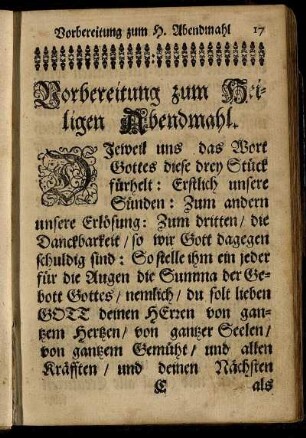 Vorbereitung zum H. Abendmahl 17
Vorbereitung zum Hei-
ligen Abendmahl.
DJeweil uns das Wort
Gottes diese drey Stück
fürhelt: Erstlich unsere
Sünden: Zum andern
unsere Erlösung: Zum dritten / die
Danckbarkeit / so wir Gott dagegen
schuldig sind: So stelle ihm ein jeder
für die Augen die Summa der Ge-
bott Gottes / nemlich / du solt lieben
GOTT deinen HErren von gan-
tzem Hertzen / von gantzer Seelen /
von gantzem Gemüht / und allen
Kräfften / und deinen Nächsten
C als